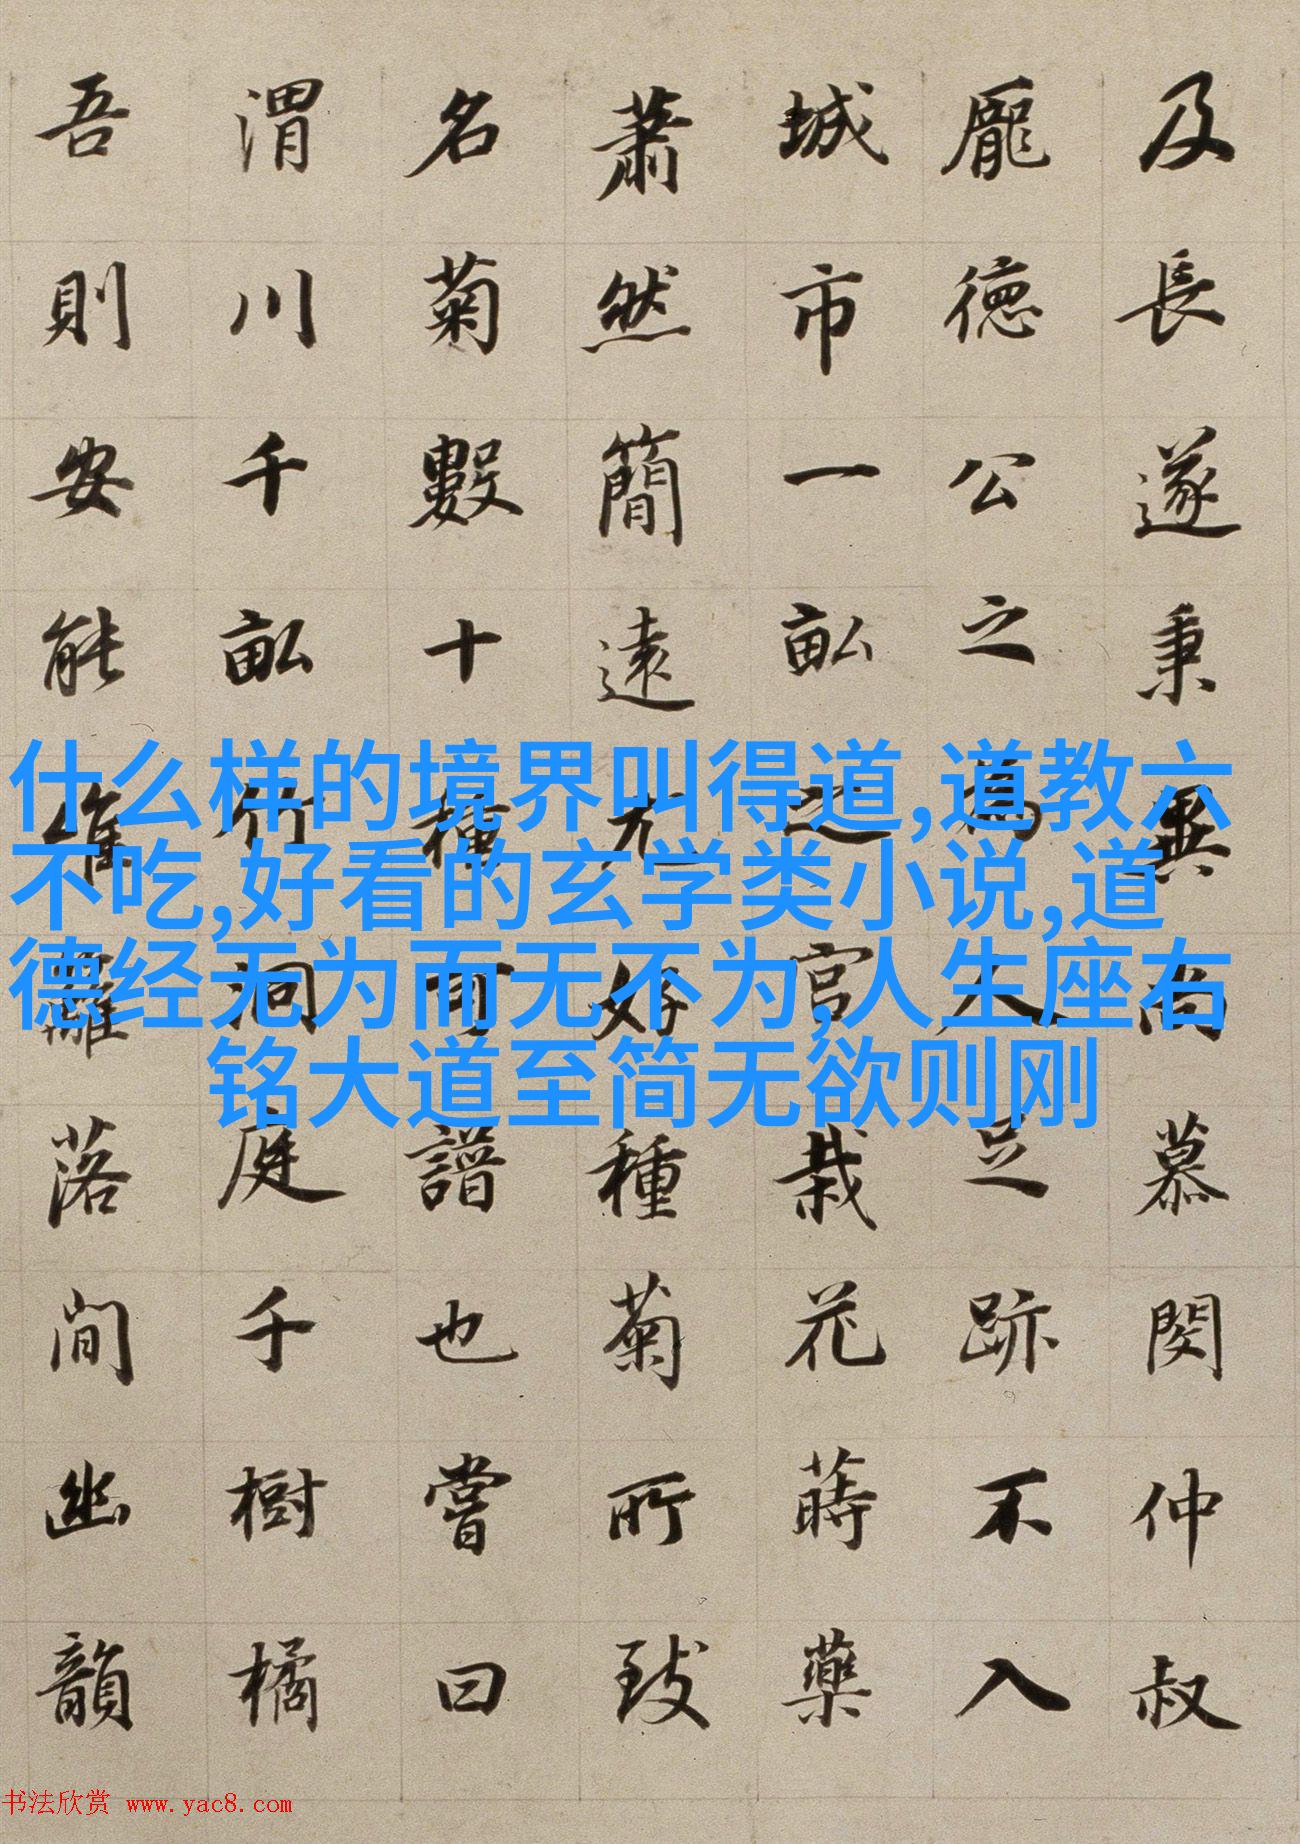 及長遂秉異尚慕閔仲叔
龐德公之為人足跡不入
城市一畝之宮栽花蒔藥
蕭然簡遠尤好種菊所致
名菊數十種可譜也嘗曰
渭川千畝竹洞庭千樹橘
吾則安能惟籬落間幽韻
什么样的境界叫得道,道教六
不吃,好看的玄学类小说,道
德经无为而无不为,人生座右
铭大道至简无欲则刚
书法欣赏 www.yac8.com